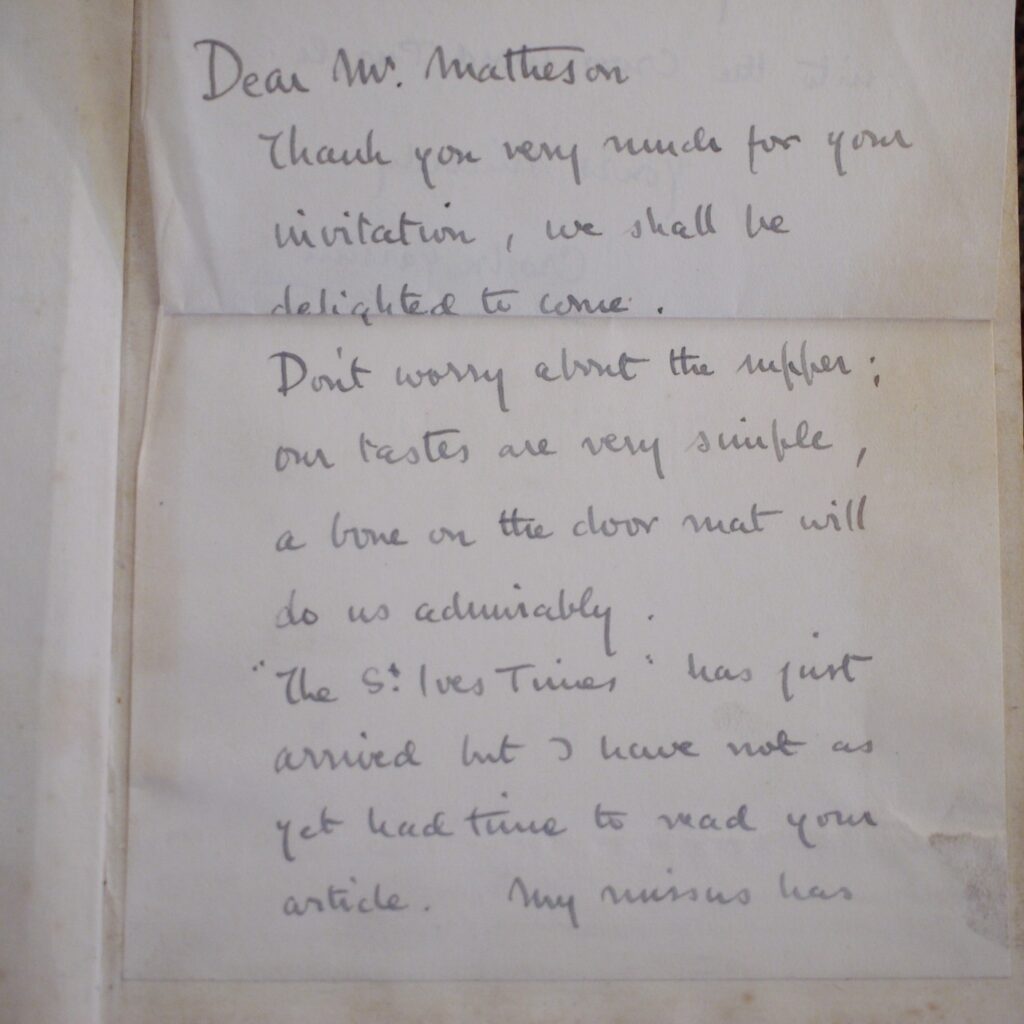 Dear Mr. Matheson
Thank you very much for your
invitation, we shall be
delighted to come.
Don't worry about the supper;
our tastes are very simple,
a bone on the door mat will
do us admirably.
"The St. Ives Times" has just
arrived but I have not as
yet had time to read your
article. My missus has